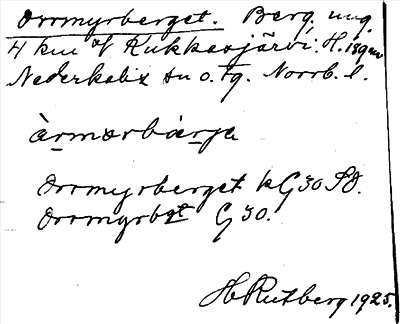 Orrmyrberget. Berg ung.
4 km of Kukkasjärvi. H. 139 m
Nederkalix sn o. tg. Norrb. l.
àrmærbàrja
Orrmyrberget kG30 SO.
Orrmyrbgt G30.
HRutberg 1925.